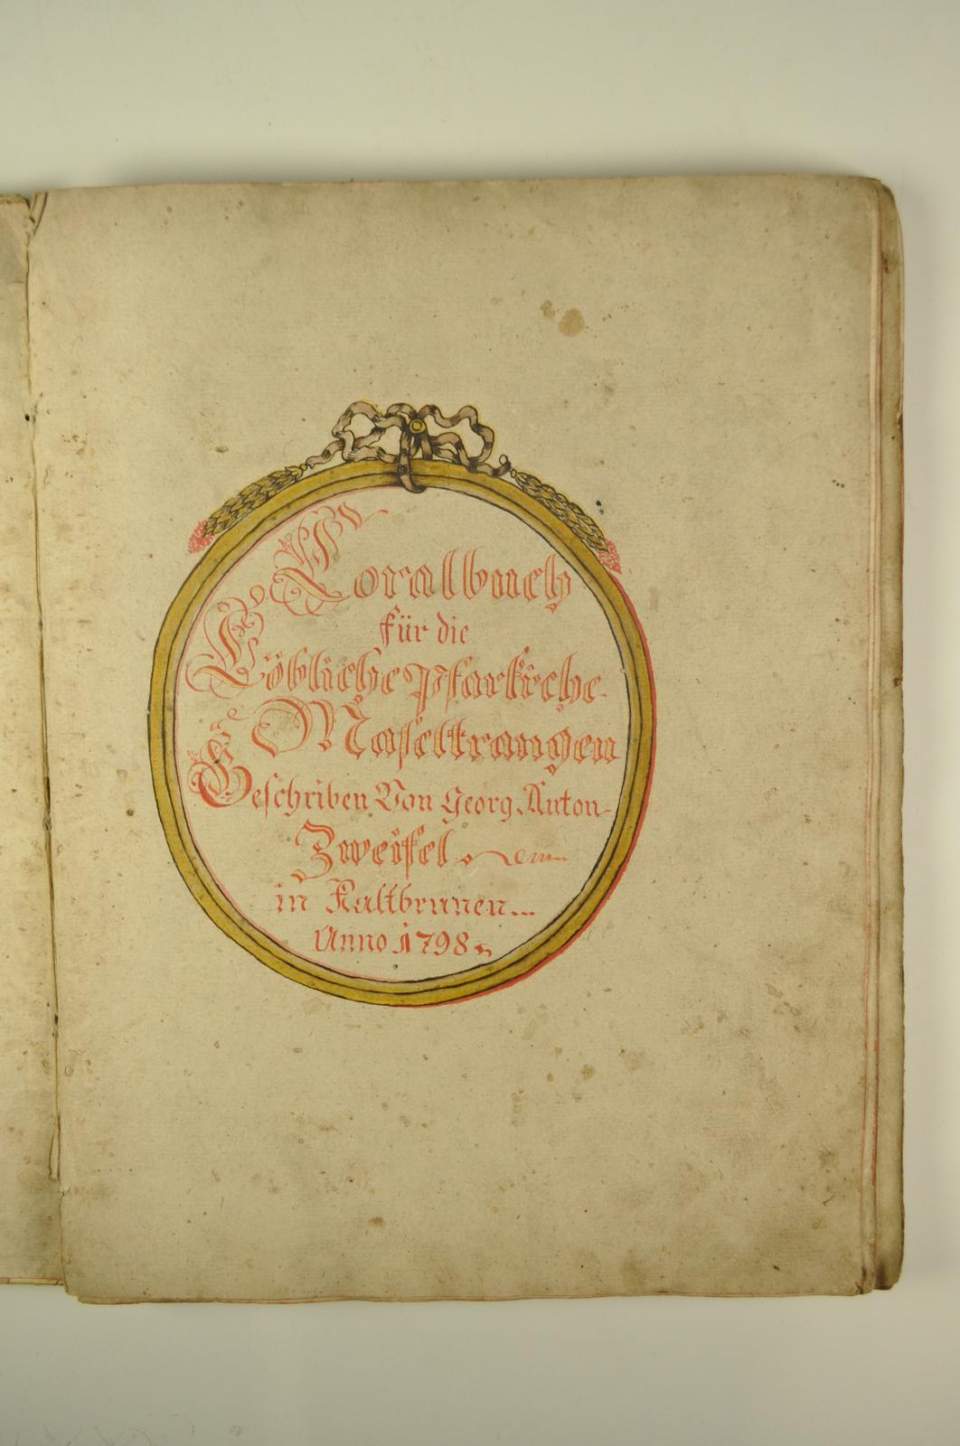 Coralbuch
für die
Löbliche Pfarkirche
Maseltrangen
Geschriben Von Georg Anton
Zweifel
in Kaltbrunen...
Anno 1798